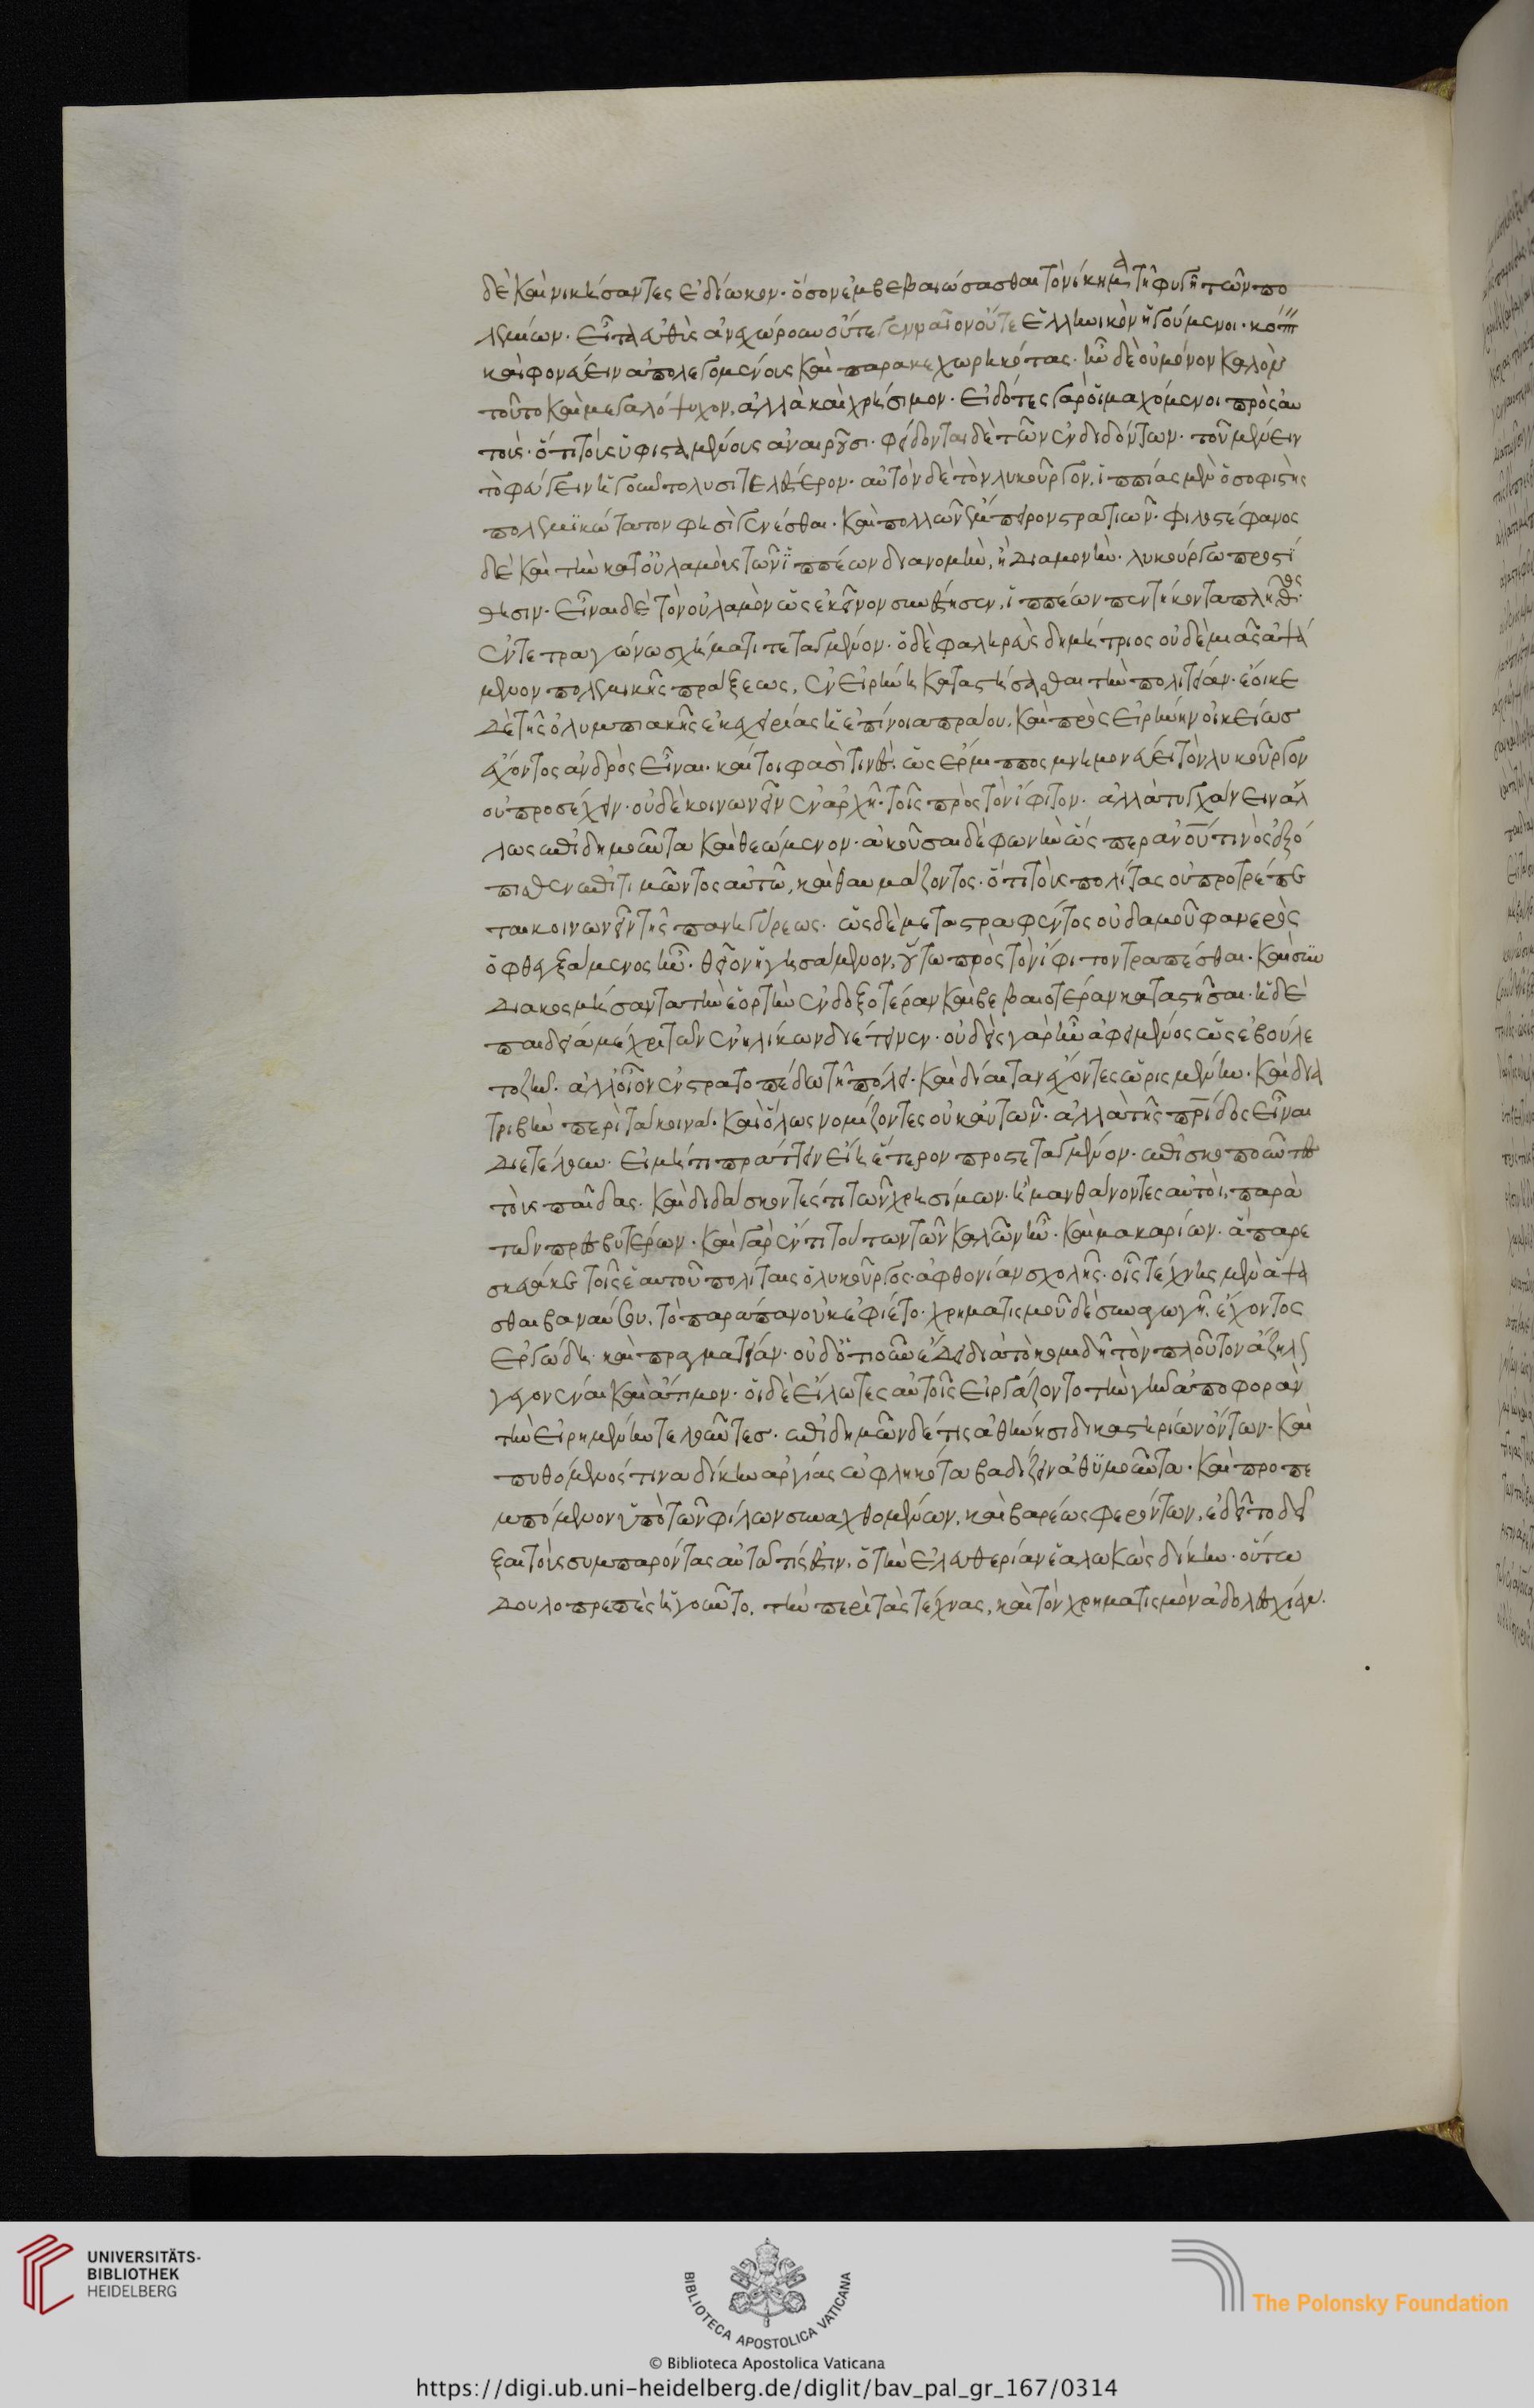 δὲ καὶ νικήσαντες ἐδίωκον· ὅσον ἐμβεβαιώσασθαι τὸ νίκημα τῇ φυγῇ τῶν πο
λεμίων. εἶτα εὐθὺς ἀνεχώρουν οὔτε γενναῖον οὔτε ἑλληνικὸν ἡγούμενοι· κόπτειν
καὶ φονεύειν ἀπολεγομένους καὶ παρακεχωρηκότας. ἦν δὲ οὐ μόνον καλὸν
τοῦτο καὶ μεγαλόψυχον, ἀλλὰ καὶ χρήσιμον. εἰδότες γὰρ οἱ μαχόμενοι πρὸς αυ
τούς· ὅτι τοὺς ὑφισταμένους ἀναιροῦσι. φείδονται δὲ τῶν ἐνδιδόντων. τοῦ μένειν
τὸ φεύγειν ἡγοῦντο λυσιτελέστερον. αὐτὸν δὲ τὸν λυκοῦργον, ἱππίας μὲν ὁ σοφιστὴς
πολεμικώτατον φησὶ γενέσθαι. καὶ πολλῶν ἔμπειρον στρατειῶν. φιλοστέφανος
δὲ καὶ τὴν κατ' οὐλαμοὺς τῶν ἱππέων διανομὴν, ἢ διαμονὴν. λυκούργω προστί
θησιν. εἶναι δὲ τὸν οὐλαμὸν ὡς ἐκεῖνον συνέστησεν, ἱππέων πεντήκοντα πλῆθος
ἐν τετραγώνω σχήματι τεταγμένον. ὁ δὲ φαληρεὺς δημήτριος οὐδὲ μιᾶς ἁψά
μενον πολεμικῆς πράξεως, ἐν εἰρήνῃ καταστήσασθαι τὴν πολιτείαν. ἔοικε
δὲ τῆς ὀλυμπιακῆς ἐκεχειρίας ἡ ἐπίνοια πράου, καὶ πρὸς εἰρήνην οἰκείως
ἔχοντος ἀνδρὸς εἶναι. καίτοι φασὶ τινὲς, ὡς ἕρμιππος μνημονεύει τὸν λυκοῦργον
οὐ προσέχειν· οὐδὲ κοινωνεῖν ἐν ἀρχῇ. τοῖς πρὸς τὸν ἴφιτον. ἀλλὰ τυγχάνειν ἄλ
λως ἐπιδημοῦντα καὶ θεώμενον. ἀκοῦσαι δὲ φωνὴν ὥς περ ἀνοῦ τινὸς ἐξό
πισθεν ἐπιτιμῶντος αὐτῷ, καὶ θαυμάζοντος· ὅτι τοὺς πολίτας οὐ προτρέπε
ται κοινωνεῖν τῆς πανηγύρεως. ὡς δὲ μεταστραφέντος οὐδαμοῦ φανερὸς
ὁ φθεγξάμενος ἦν. θεῖον ἡγησάμενον, οὕτω πρὸς τὸν ἴφιτον τραπέσθαι. καὶ συν
διακοσμήσαντα τὴν ἑορτὴν ἐνδοξοτέραν καὶ βεβαιοτέραν καταστῆσαι. ἡ δὲ
παιδεία μέχρι τῶν ἐνηλίκων διέτεινεν. οὐδεὶς γὰρ ἦν ἀφειμένος ὡς ἐβούλε
το ζῆν. ἀλλ' οἷον ἐν στρατοπέδω τῇ πόλει. καὶ δίαιταν ἔχοντες ὡρισμένην. καὶ δια
τριβὴν περὶ τὰ κοινά. καὶ ὅλως νομίζοντες οὐχ αὑτῶν. ἀλλὰ τῆς πρίδος εἶναι
διετέλουν. εἰ μή τι πράττειν εἴη ἕτερον προστεταγμένον. ἐπισκοποῦντες
τοὺς παῖδας. καὶ διδάσκοντές τι τῶν χρησίμων. ἢ μανθάνοντες αὐτοὶ, παρὰ
τῶν πρεσβυτέρων. καὶ γὰρ ἕν τι τούτων τῶν καλῶν ἦν. καὶ μακαρίων. ἃ παρε
σκεύασε τοῖς ἑαυτοῦ πολίταις ὁ λυκοῦργος· ἀφθονίαν σχολῆς. οἷς τέχνης μὲν ἅψα
σθαι βαναύσου, τὸ παράπαν οὐκ ἐφίετο. χρηματισμοῦ δὲ συναγωγὴν, ἔχοντος
ἐργώδη καὶ πραγματείαν. οὐδ' ὁτιοῦν ἔδει διὰ τὸ κομιδῇ τὸν πλοῦτον ἄζηλον
γεγονέναι καὶ ἄτιμον. οἱ δὲ εἵλωτες αὐτοῖς εἰργάζοντο τὴν γῆν ἀποφορὰν
τὴν εἰρημένην τελοῦντες. ἐπιδημῶν δέ τις ἀθήνησι δικαστηρίων ὄντων. καὶ
πυθόμενός τινα δίκην ἀργίας ὠφληκότα βαδίζειν ἀθυμοῦντα. καὶ προπε
μπόμενον ὑπὸ τῶν φίλων συναχθομένων, καὶ βαρέως φερόντων, ἐδεῖτο δεῖ
ξαι τοὺς συμπαρόντας αὐτῷ τίς ἐστιν, ὁ τὴν ἐλευθερίαν ἑαλωκὼς δίκην. οὕτω
δουλοπρεπὲς ἡγοῦντο, τὴν περὶ τὰς τέχνας, καὶ τὸν χρηματισμὸν ἀδολεσχίαν.
UNIVERSITÄTS-
BIBLIOTHEK
HEIDELBERG
BIBLIOTECA APOSTOLICA VATICANA
The Polonsky Foundation
© Biblioteca Apostolica Vaticana
https://digi.ub.uni-heidelberg.de/diglit/bav_pal_gr_167/0314